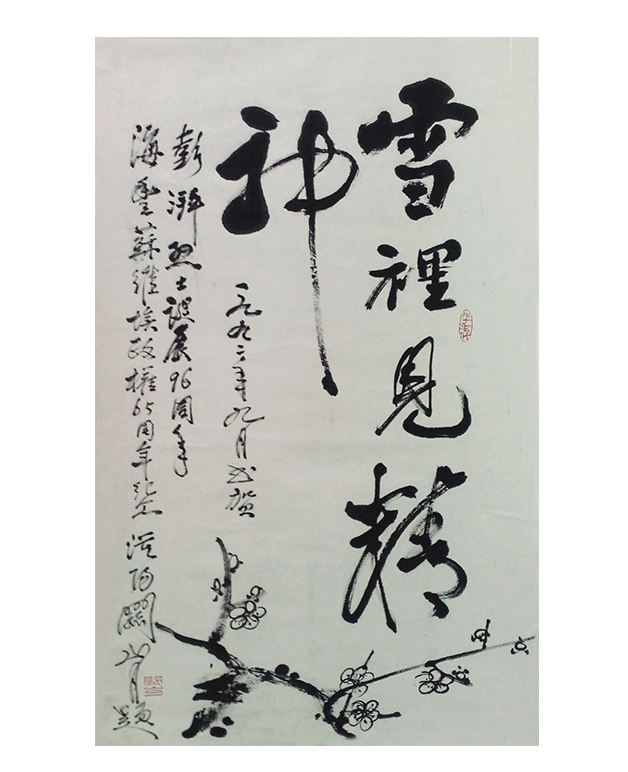 雪裡見精
神
一九九二年九月书贺
彭湃烈士誕辰96周年
海豐蘇維埃政權65周年紀念 漠阳關山月題